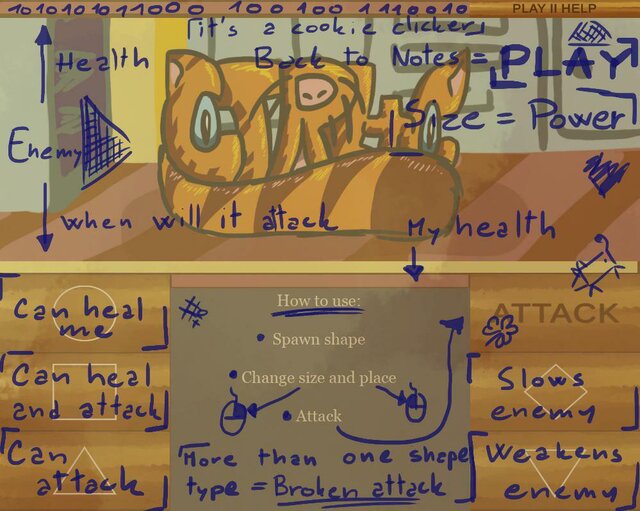 1010101011000 100 100 1100010
PLAY II HELP
it's a cookie clicker
Health
Back to Notes = PLAY
Size = Power
Enemy
when will it attack
My health
Can heal
me
How to use:
ATTACK
Spawn shape
Can heal
and attack
Change size and place
Slows
enemy
Attack
Can
attack
More than one shape
type = Broken attack
Weakens
enemy